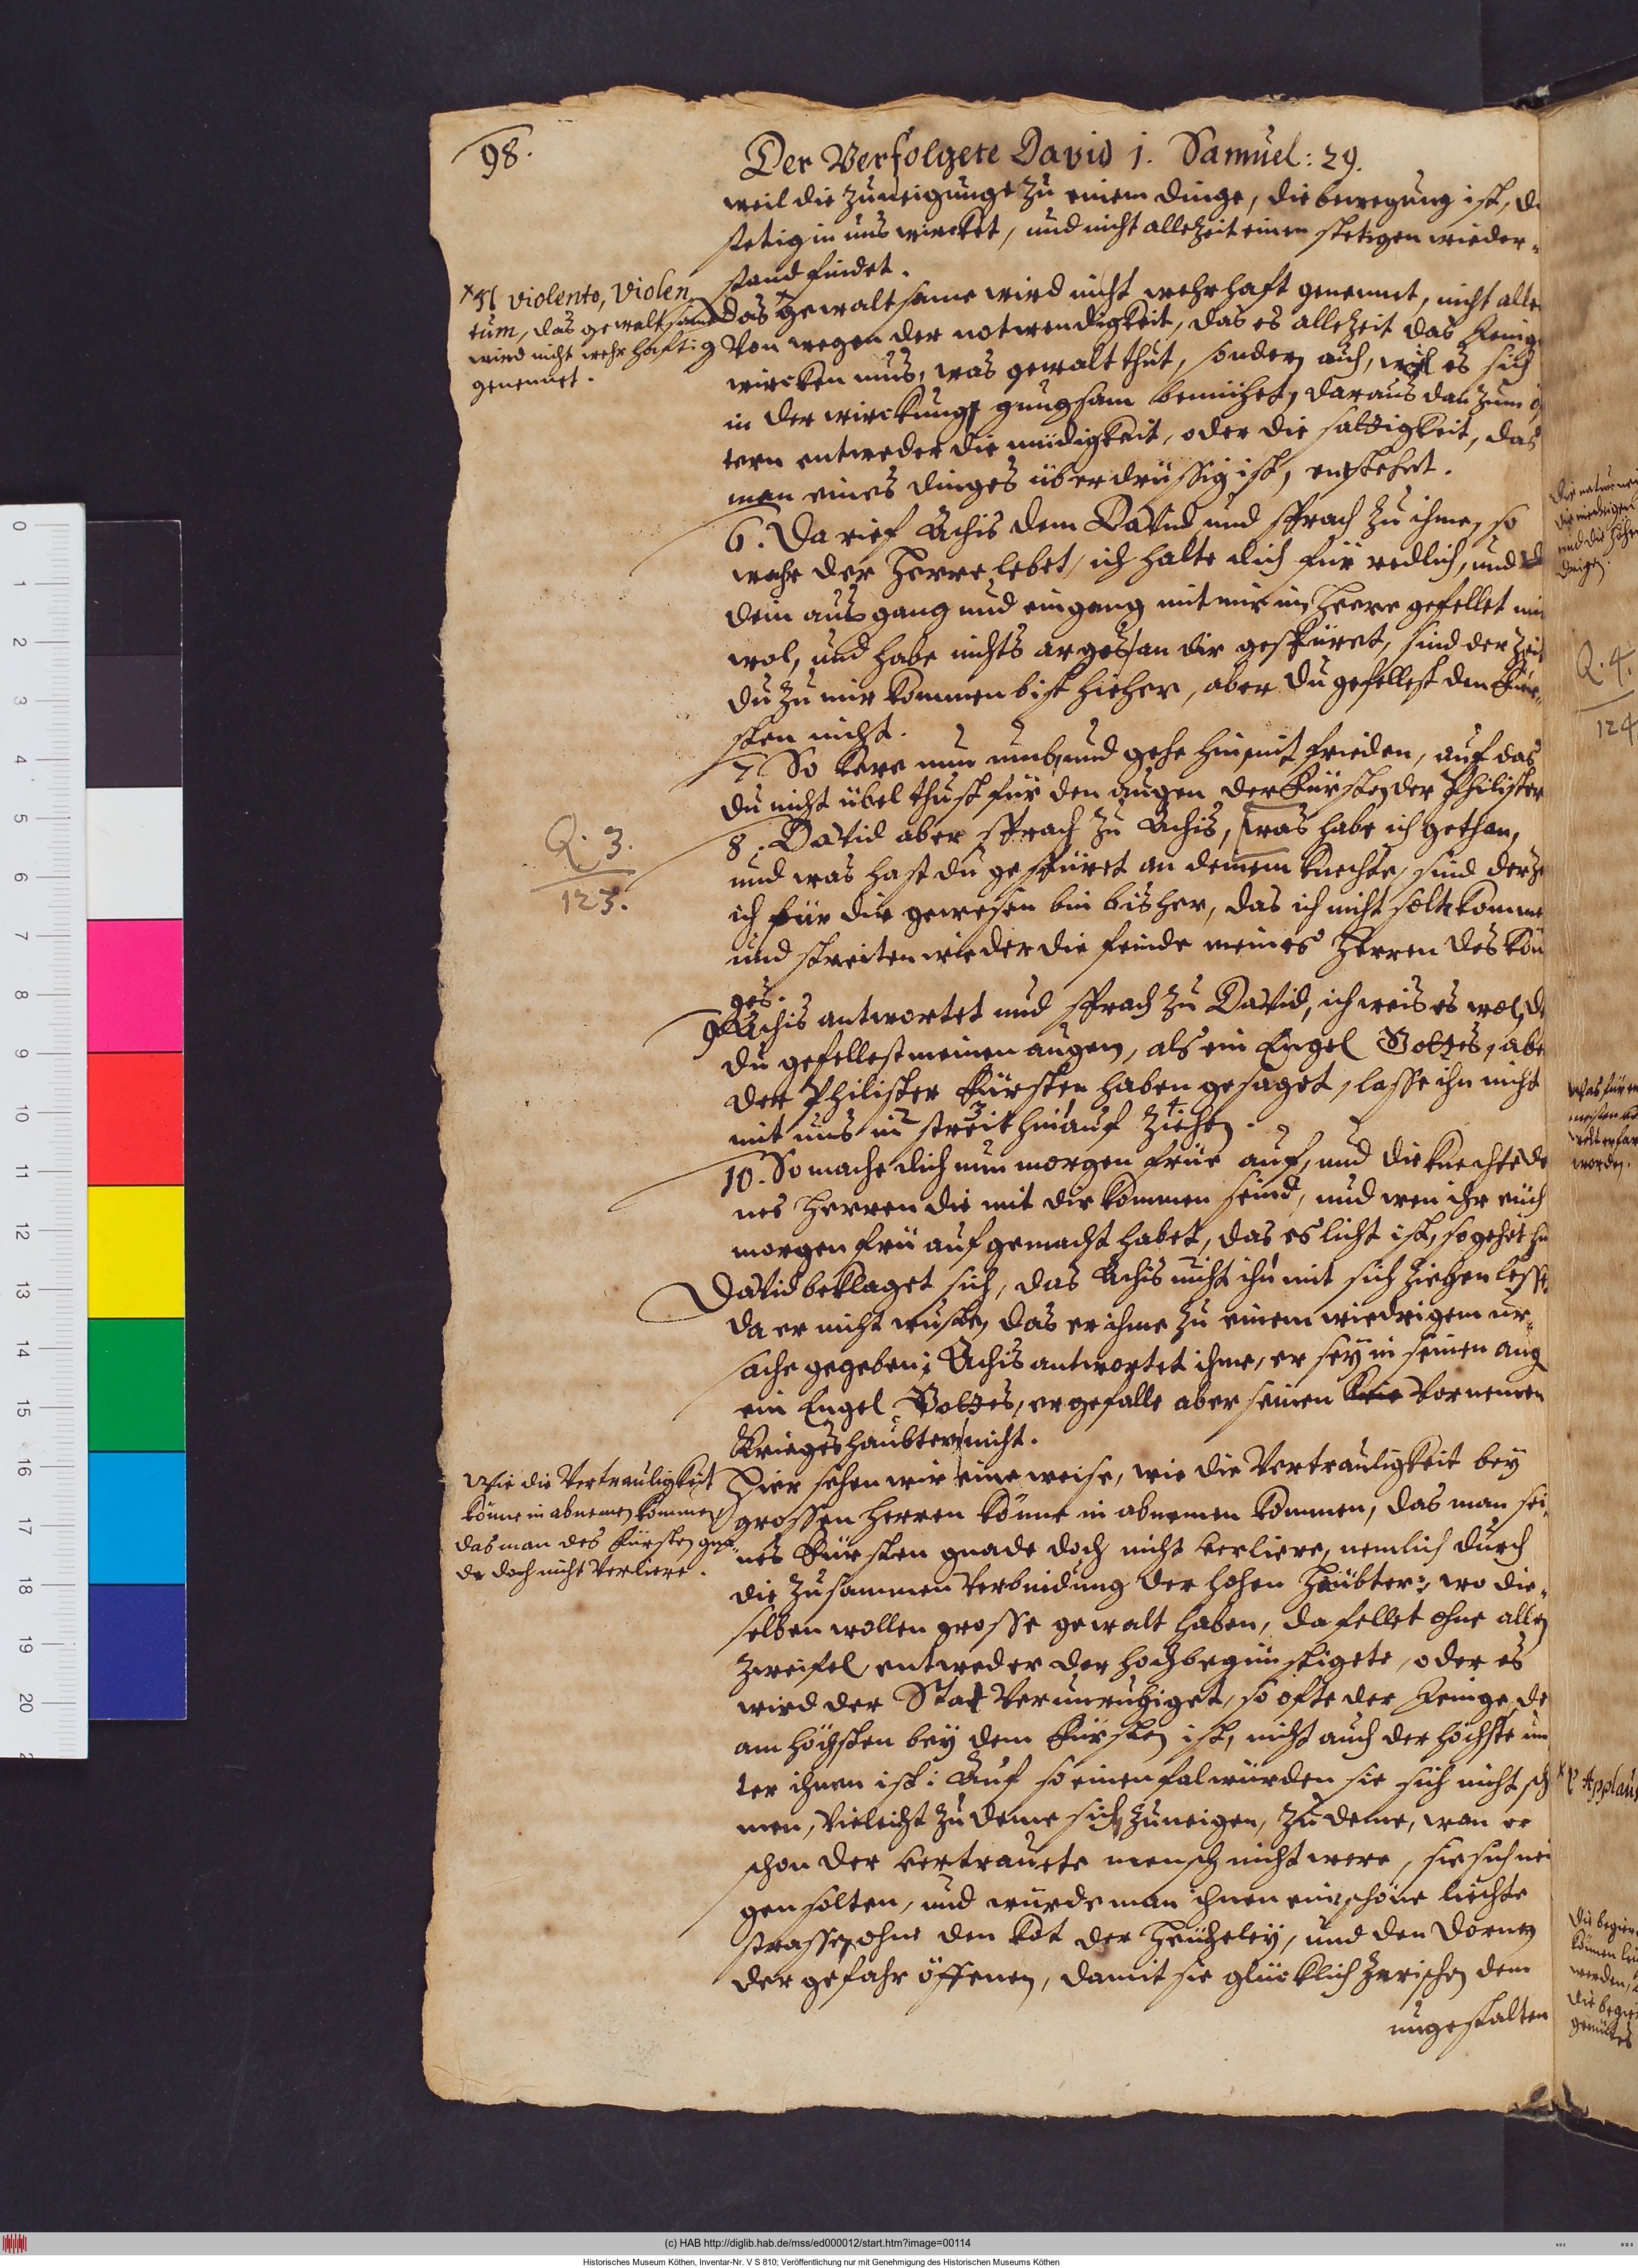 98.
Der Verfolgete David 1. Samuel: 29.
weil die zuneigunge zu einem dinge, die bewegung ist, di
stetig in uns wircket, und nicht allezeit einen stetigen wieder-
stand findet.
× Il violento, Violen
tum, das gewaltsame
wird nicht wehrhaftig
genennet.
Das × gewaltsame wird nicht wehrhaft genennet, nicht alle
Von wegen der notwendigkeit, das es allezeit das Jenige
wircken mus, was gewalt thut, sondern auch, weil es sich
in der wirckung gnugsam bemühet, daraus dan zum ö
tern entweder die müdigkeit, oder die sattigkeit, das
man eines dinges überdrüssig ist, entstehet.
6. Da rief Achis dem David und sprach zu ihme, so
wahr der Herre lebet, ich halte dich für redlich, und
dein ausgang und eingang mit mir im Heere gefellet mir
wol, und habe nichts arges an dir gespüret, sind der Zeit
du zu mir kommen bist hieher, aber du gefellest den Für-
sten nicht.
7. So kere nun umb, und gehe hin mit frieden, auf das
du nicht übel thust für den augen der Fürsten der Philister
Q. 3.
123.
8. David aber sprach zu Achis, was habe ich gethan,
und was hast du gespüret an deinem knechte, sind der Ze
ich für dir gewesen bin bisher, das ich nicht solte komme
und streiten wieder die feinde meines Herren des Kön
ges.
9. Achis antwortet und sprach zu David, ich weis es wol, de
du gefellest meinen augen, als ein Engel Gottes, abe
der Philister Fürsten haben gesaget, lasse ihn nicht
mit uns in streit hinauf Ziehen.
10. So mache dich nun morgen früe auf, und die knechte de
nes Herren die mit dir kommen seind, und wen ihr euch
morgen frü aufgemacht habet, das es licht ist, so gehet hin
David beklaget sich, das Achis nicht ihn mit sich Ziehen lesse
da er nicht wuste, das er ihme zu einem wiedrigem ur-
sache gegeben; Achis antwortet ihme, er sey in seinen aug
ein Engel Gottes, er gefalle aber seinen Vornemen
Krieges haubtern nicht.
Wie die Vertrauligkeit
könne in abnemen kommen,
das man des Fürsten gna-
de doch nicht Verliere.
Hier sehen wir eine weise, wie die Vertrauligkeit bey
grossen Herren könne in abnemen kommen, das man sei-
nes Fürsten gnade doch nicht Verliere, nemlich durch
die Zusammen Verbindung der hohen Häubter; wo die-
selben wollen grosse gewalt haben, da fellet ohne allen
Zweifel, entweder der hochbegünstigete, oder es
wird der Stat Verunruhiget, so ofte der Jenige, de
am höchsten bey dem Fürsten ist, nicht auch der höchste un
ter ihnen ist: Auf so einen fal würden sie sich nicht sch
men, Vieleicht zu deme sich zuneigen, zu deme, wan er
schon der Vertrauete mensch nicht were, sie sich nei
gen solten, und würde man ihnen eine schöne liechte
strasse, ohne den kot der Heucheley, und den Dornen
der gefahr öffenen, damit sie glücklich Zwischen dem
ungestalten
Q. 4.
124
(c) HAB http://diglib.hab.de/mss/ed000012/start.htm?image=00114
Historisches Museum Köthen, Inventar-Nr. V S 810; Veröffentlichung nur mit Genehmigung des Historischen Museums Köthen